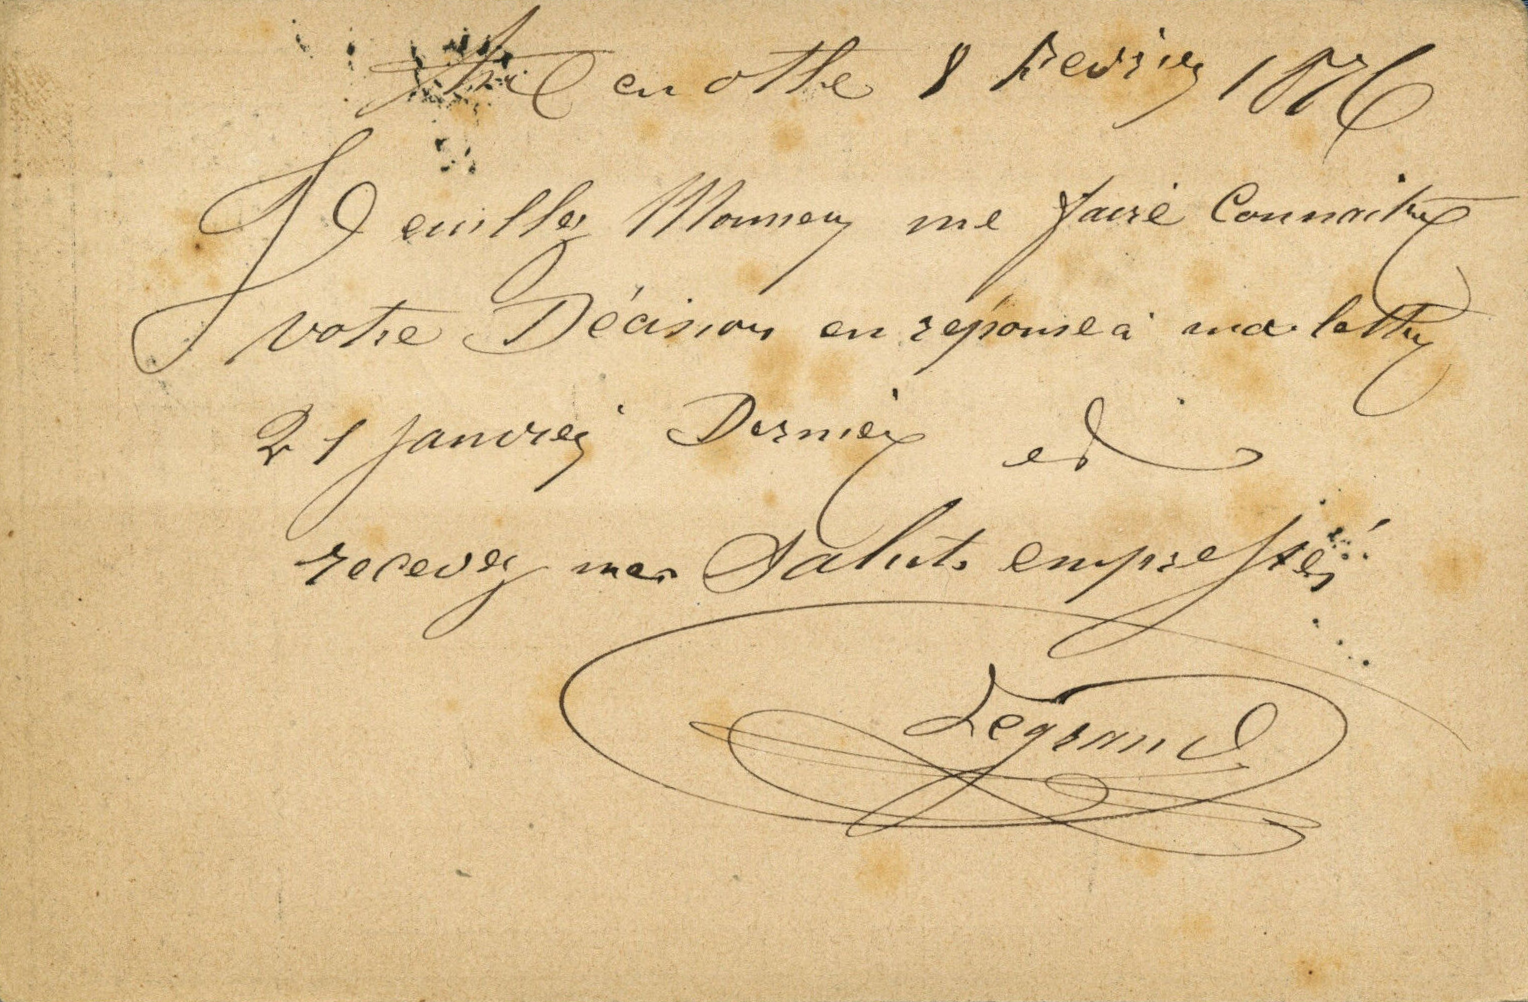 Aix en othe 8 Fevrier 1876
Veuillez Monsieur me faire Connaitre
votre Décision en réponse à ma lettre
21 Janvier Dernier et
recevez mes Saluts empressés
Legrand